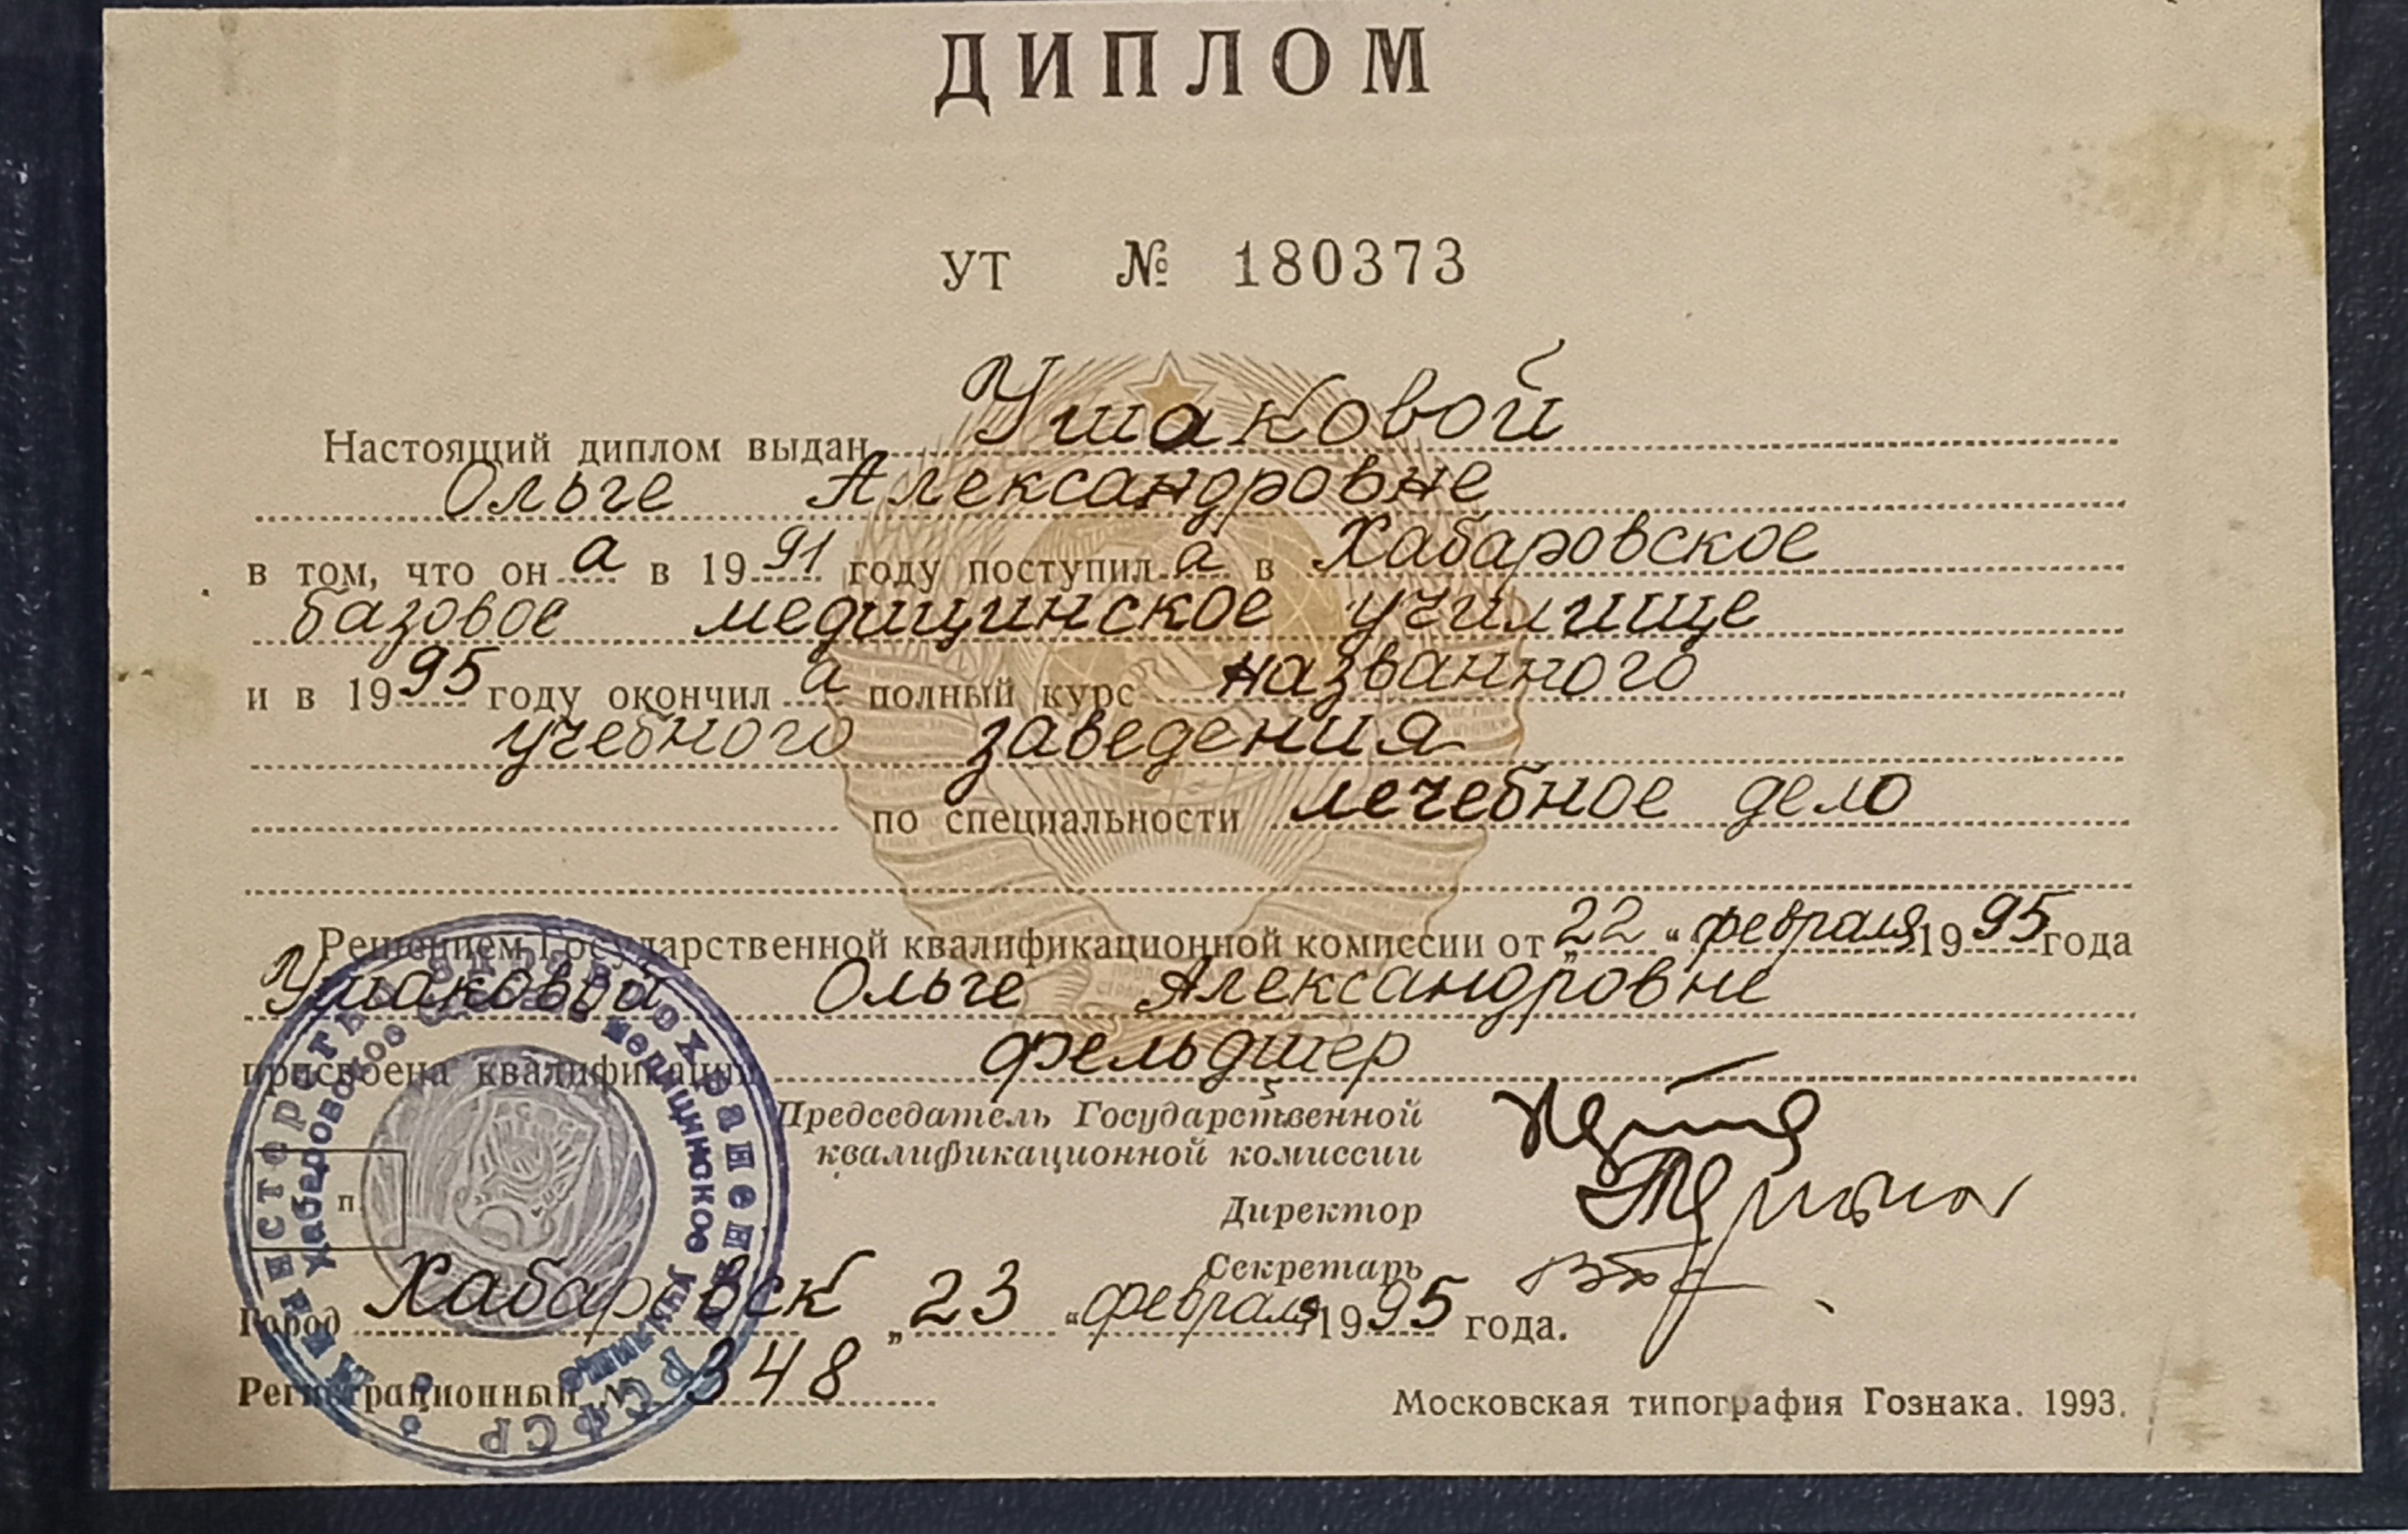 ДИПЛОМ
УТ № 180373
Настоящий диплом выдан Ушаковой
Ольге Александровне
в том, что он а в 19 91 году поступил а в Хабаровское
базовое медицинское училище
и в 19 95 году окончил а полный курс названного
учебного заведения
по специальности лечебное дело
Решением Государственной квалификационной комиссии от „ 22 “ февраля 19 95 года
Ушаковой Ольге Александровне
присвоена квалификация фельдшер
Председатель Государственной
квалификационной комиссии
Директор
Секретарь
Министерство здравоохранения РСФСР
Хабаровское базовое медицинское училище
п.
Город Хабаровск „ 23 “ февраля 19 95 года.
Регистрационный № 348
Московская типография Гознака. 1993.